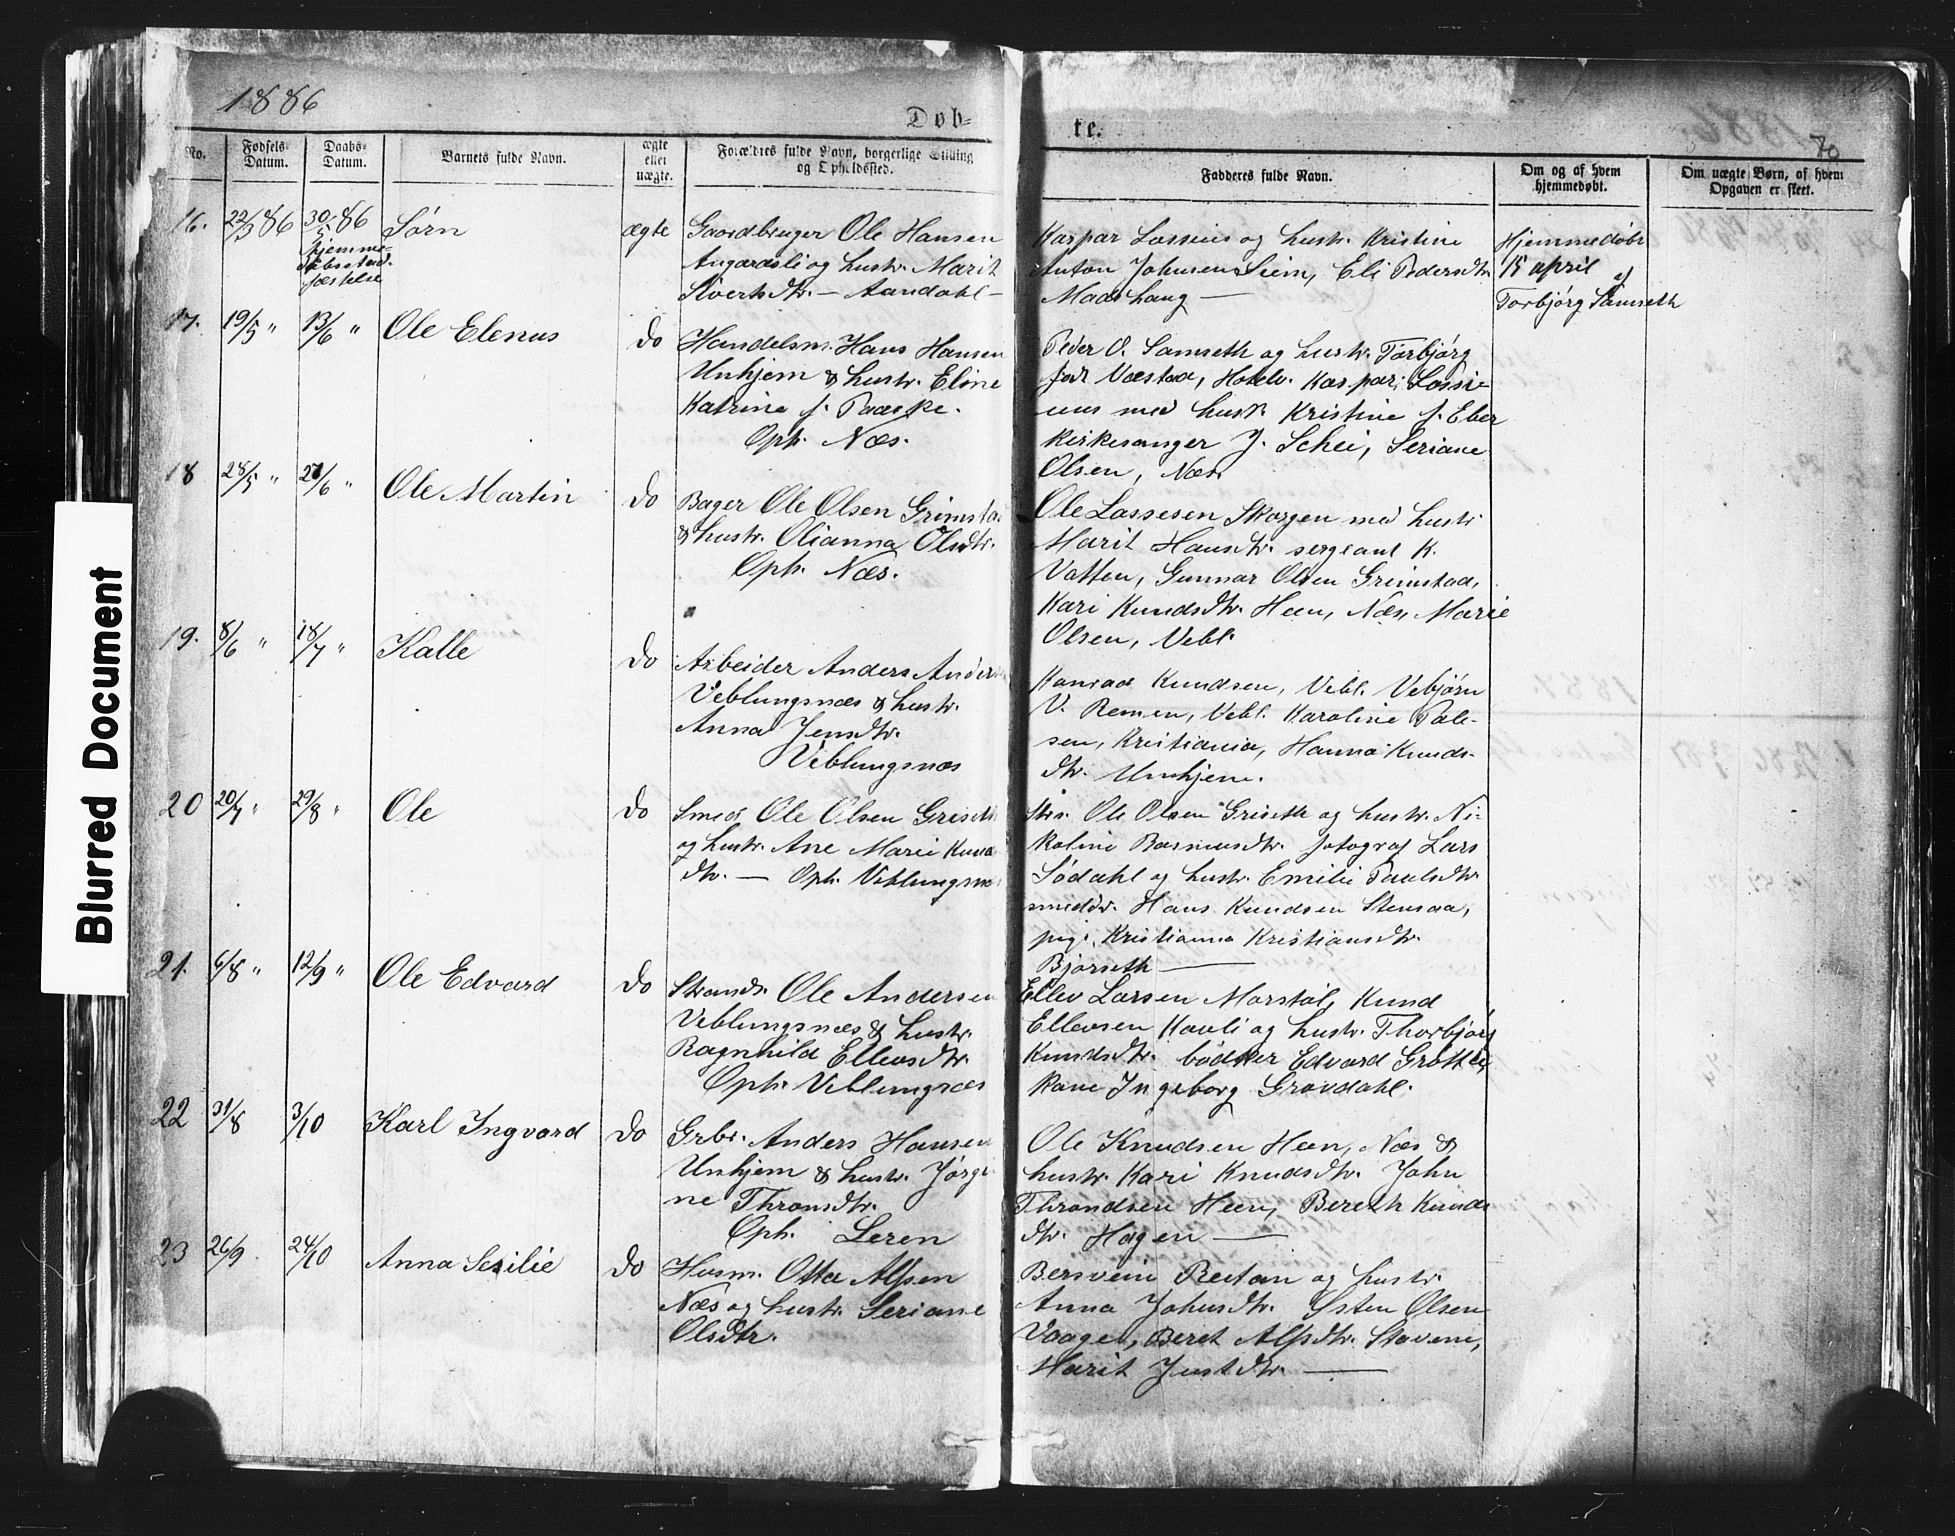 Blurred Document
1886
Døb-
te.
1886.
80
No.
Fødsels-Datum.
Daabs-Datum.
Barnets fulde Navn.
ægte eller uægte.
Forældres fulde Navn, borgerlige Stilling og Opholdssted.
Fadderes fulde Navn.
Om og af hvem hjemmedøbt.
Om uægte Børn, af hvem Opgaven er skeet.
16. 22/3 86 30/5 86 Sørn ægte
hjemme-
dåbsstad-
fæstelse
Gaardbruger Ole Hansen
Angardsli og hustr. Marit
Sivertsdtr. — Aandahl —
Kaspar Lossius og hustr. Kristine
Anton Johnsen Seim, Eli Pedersdtr.
Madshaug —
Hjemmedøbt
15 april af
Torbjørg Samseth
17. 19/5 " 13/6 " Ole Elenus do
Handelsm. Hans Hansen
Unhjem & hustr. Eline
Katrine f. Paaske.
Oph. Næs.
Peder O. Samseth og hustr. Torbjørg
født Næstad, Hotelv. Kaspar Lossi-
us med hustr. Kristine f. Eber
Kirkesanger J. Schei, Seriane
Olsen, Næs
18 28/5 " 27/6 " Ole Martin do
Bager Ole Olsen Grimstad
& hustr. Olianna Olsdtr.
Oph. Næs.
Ole Lassesen Skorgen med hustr
Marit Hansdtr. sergeant K.
Vatten, Gunnar Olsen Grimstad,
Kari Knudsdtr. Heen, Næs, Marie
Olsen, Vebl.
19. 8/6 " 18/7 " Kalle do
Arbeider Anders Anders
Veblungsnæs & hustr.
Anna Jensdtr.
Veblungsnæs
Konrad Knudsen, Vebl. Vebjørn
V. Remen, Vebl. Karoline Pale-
sen, Kristiania, Hanna Knuds-
dtr. Unhjem.
20 20/7 " 29/8 " Ole do
Smed Ole Olsen Griseth
og hustr. Ane Marie Knuds
dtr. — Oph. Veblungsnæs
Ole Olsen Griseth og hustr. Ni-
koline Rasmusdtr. fotograf Lars
Sødahl og hustr. Emilie Paulsdtr.
smeddr. Hans Knudsen Stensaa,
pige Kristianna Kristiansdtr.
Bjørseth —
21. 6/8 " 12/9 " Ole Edvard do
Strands. Ole Andersen
Veblungsnæs & hustr.
Ragnhild Ellevsdtr.
Oph. Veblungsnæs
Ellev Larsen Marstøl, Knud
Ellevsen Kavli og hustr. Thorbjørg
Knudsdtr. bødker Edvard Grøtte,
kone Ingeborg Grøndahl.
22 31/8 3/10 Karl Ingvard do
Grbr. Anders Hansen
Unhjem & hustr. Jørgi-
ne Thronsdtr.
Oph. Leren
Ole Knudsen Heen, Næs &
hustr. Kari Knudsdtr. John
Throndsen Heen, Bereth Knuds
dtr. Hagen —
23 26/9 24/10 Anna Sesilie do
Husm. Otto Alfsen
Næs og hustr. Seriane
Olsdtr.
Bersvein Reitan og hustr.
Anna Johnsdtr. Østen Olsen
Vaage, Beret Alfsdtr. Stavene,
Marit Justdtr. —